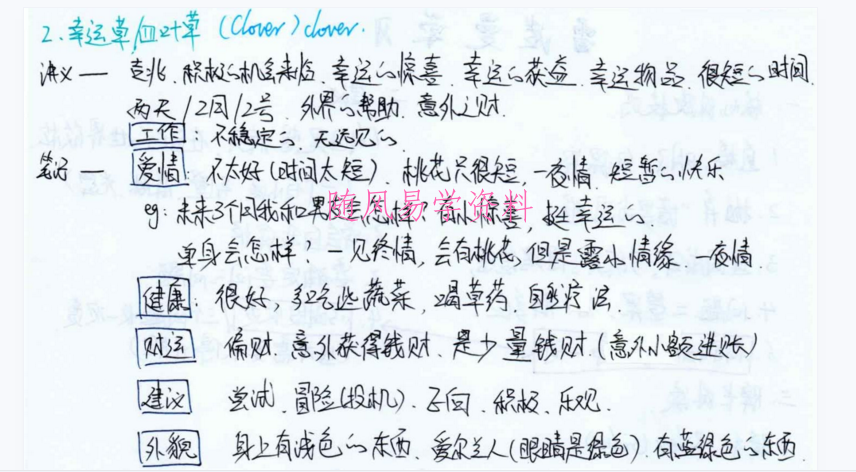 2.幸运草/四叶草 (Clover) clover.
讲义 — 吉兆.积极的机会来临.幸运的惊喜.幸运的获益.幸运物品.很短的时间.
两天/2周/2号 外界的帮助.意外之财.
工作: 不稳定的.无远见的.
笔记 爱情 不太好(时间太短).桃花只很短,一夜情.短暂的快乐
eg:未来3个周我和男友会怎样?有小惊喜,挺幸运的.
单身会怎样:一见终情,会有桃花,但是露水情缘.一夜情
健康: 很好,多吃些蔬菜,喝草药.自然疗法.
财运 偏财.意外获得钱财.是少量钱财(意外小额进账)
建议 尝试.冒险(投机).积极.乐观.
外貌 身上有浅色的东西.爱尔兰人(眼睛是绿色).有蓝绿色的东西.
随风易学资料